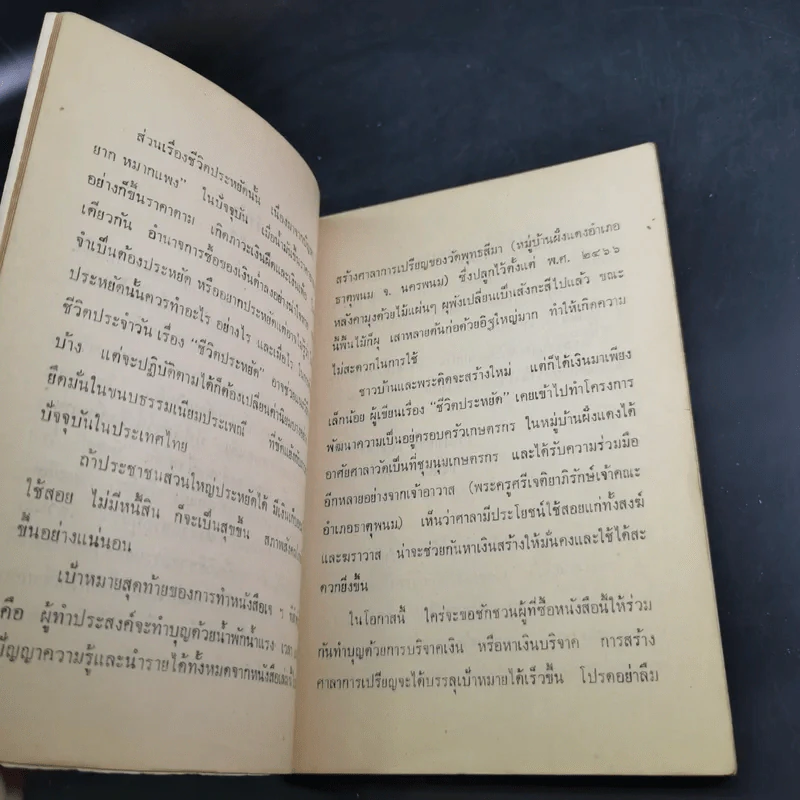 ส่วนเรื่องชีวิตประหยัดนั้น
ยาก หมากแพง" ในปัจจุบัน เมื่อน้ำมันขึ้นราคา
อย่างก็ขึ้นราคาตาม เกิดภาวะเงินฝืดและเงินเฟ้อ
เดียวกัน อำนาจการซื้อของเงินต่ำลงอย่างน่าใจหาย
จำเป็นต้องประหยัด หรืออยากประหยัดแต่อาจไม่รู้
ประหยัดนั้นควรทำอะไร อย่างไร และเมื่อไร
ชีวิตประจำวัน เรื่อง "ชีวิตประหยัด" อาจช่วย
บ้าง แต่จะปฏิบัติตามได้ก็ต้องเปลี่ยนค่านิยม
ยึดมั่นในขนบธรรมเนียมประเพณี ที่ขัดแย้ง
ปัจจุบันในประเทศไทย
ถ้าประชาชนส่วนใหญ่ประหยัดได้ มีเงินเก็บ
ใช้สอย ไม่มีหนี้สิน ก็จะเป็นสุขขึ้น สภาพสังคม
ขึ้นอย่างแน่นอน
เป้าหมายสุดท้ายของการทำหนังสือเจ ๆ
คือ ผู้ทำประสงค์จะทำบุญด้วยน้ำพักน้ำแรง เวลา
ปัญญาความรู้และนำรายได้ทั้งหมดจากหนังสือเล่มนี้
สร้างศาลาการเปรียญของวัดพุทธสีมา (หมู่บ้านฝั่งแดงอำเภอ
ธาตุพนม จ. นครพนม) ซึ่งปลูกไว้ตั้งแต่ พ.ศ. ๒๔๖๖
หลังคามุงด้วยไม้แผ่นๆ ผุพังเปลี่ยนเป็นสังกะสีไปแล้ว ขณะ
นี้พื้นไม้ก็ผุ เสาหลายต้นก่อด้วยอิฐใหญ่มาก ทำให้เกิดความ
ไม่สะดวกในการใช้
ชาวบ้านและพระคิดจะสร้างใหม่ แต่ก็ได้เงินมาเพียง
เล็กน้อย ผู้เขียนเรื่อง "ชีวิตประหยัด" เคยเข้าไปทำโครงการ
พัฒนาความเป็นอยู่ครอบครัวเกษตรกร ในหมู่บ้านฝั่งแดงได้
อาศัยศาลาวัดเป็นที่ชุมนุมเกษตรกร และได้รับความร่วมมือ
อีกหลายอย่างจากเจ้าอาวาส (พระครูศรีเจติยาภิรักษ์เจ้าคณะ
อำเภอธาตุพนม) เห็นว่าศาลามีประโยชน์ใช้สอยแก่ทั้งสงฆ์
และฆราวาส น่าจะช่วยกันหาเงินสร้างให้มั่นคงและใช้ได้สะ
ดวกยิ่งขึ้น
ในโอกาสนี้ ใคร่จะขอชักชวนผู้ที่ซื้อหนังสือนี้ให้ร่วม
กันทำบุญด้วยการบริจาคเงิน หรือหาเงินบริจาค การสร้าง
ศาลาการเปรียญจะได้บรรลุเป้าหมายได้เร็วขึ้น โปรดอย่าลืม